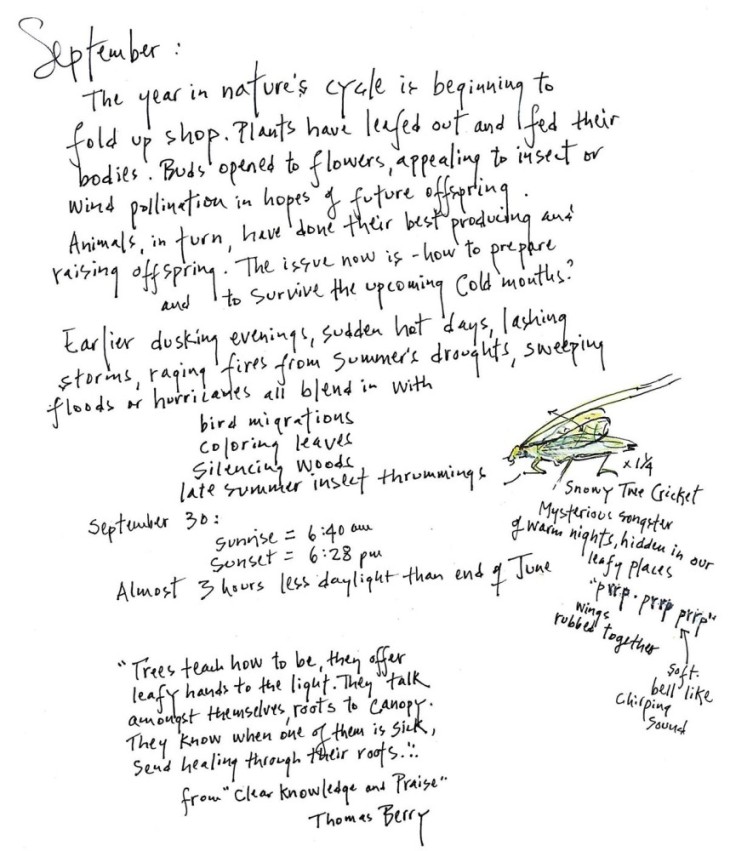 September :
The year in nature's cycle is beginning to
fold up shop. Plants have leafed out and fed their
bodies. Buds opened to flowers, appealing to insect or
wind pollination in hopes of future offspring.
Animals, in turn, have done their best producing and
raising offspring. The issue now is - how to prepare
and to survive the upcoming cold months?
Earlier dusking evenings, sudden hot days, lashing
storms, raging fires from summer's droughts, sweeping
floods or hurricanes all blend in with
bird migrations
coloring leaves
silencing woods
late summer insect thrummings
x 1¼
Snowy Tree Cricket
Mysterious songster
of warm nights, hidden in our
leafy places
"prrp · prrp prrp"
wings
rubbed together
soft.
bell like
chirping
sound
September 30:
sunrise = 6:40 am
sunset = 6:28 pm
Almost 3 hours less daylight than end of June
"Trees teach how to be, they offer
leafy hands to the light. They talk
amongst themselves, roots to canopy.
They know when one of them is sick,
send healing through their roots..."
from "Clear Knowledge and Praise"
Thomas Berry